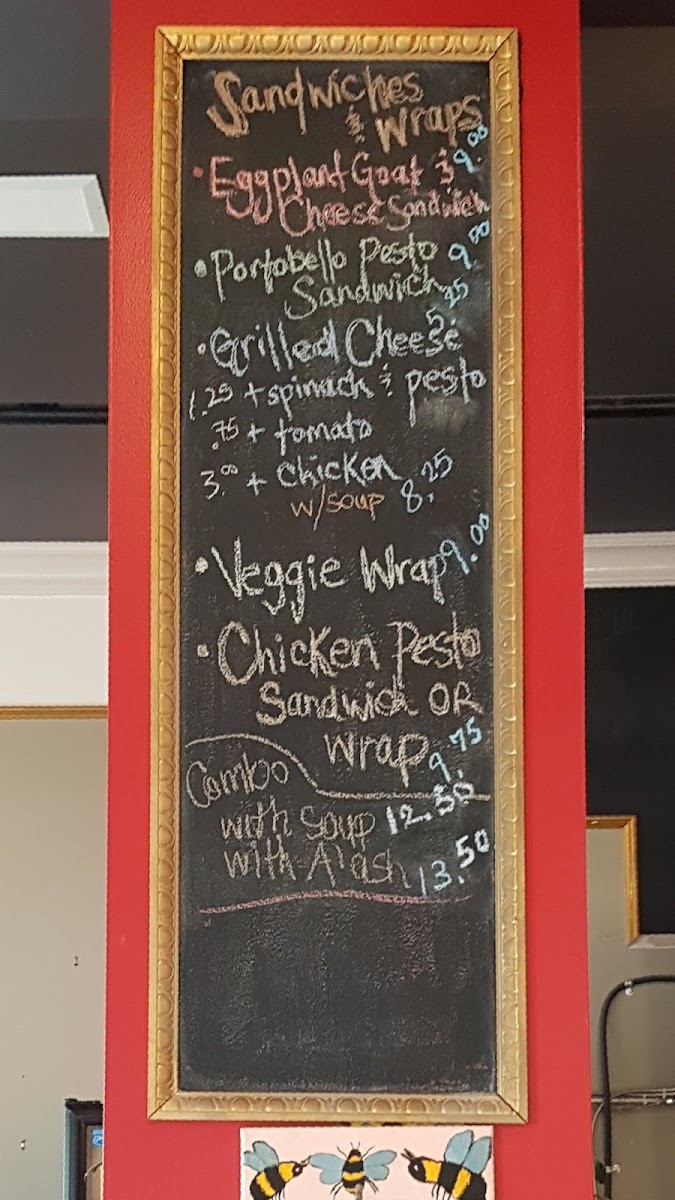 Sandwiches
& Wraps
• Eggplant Goat & 9.00
Cheese Sandwich
• Portobello Pesto 9.00
Sandwich
• Grilled Cheese 5.25
1.25 + spinach & pesto
.75 + tomato
3.00 + Chicken
w/soup 8.25
• Veggie Wrap 9.00
• Chicken Pesto
Sandwich OR
Wrap 9.75
Combo
with soup 12.50
with A'ash 13.50